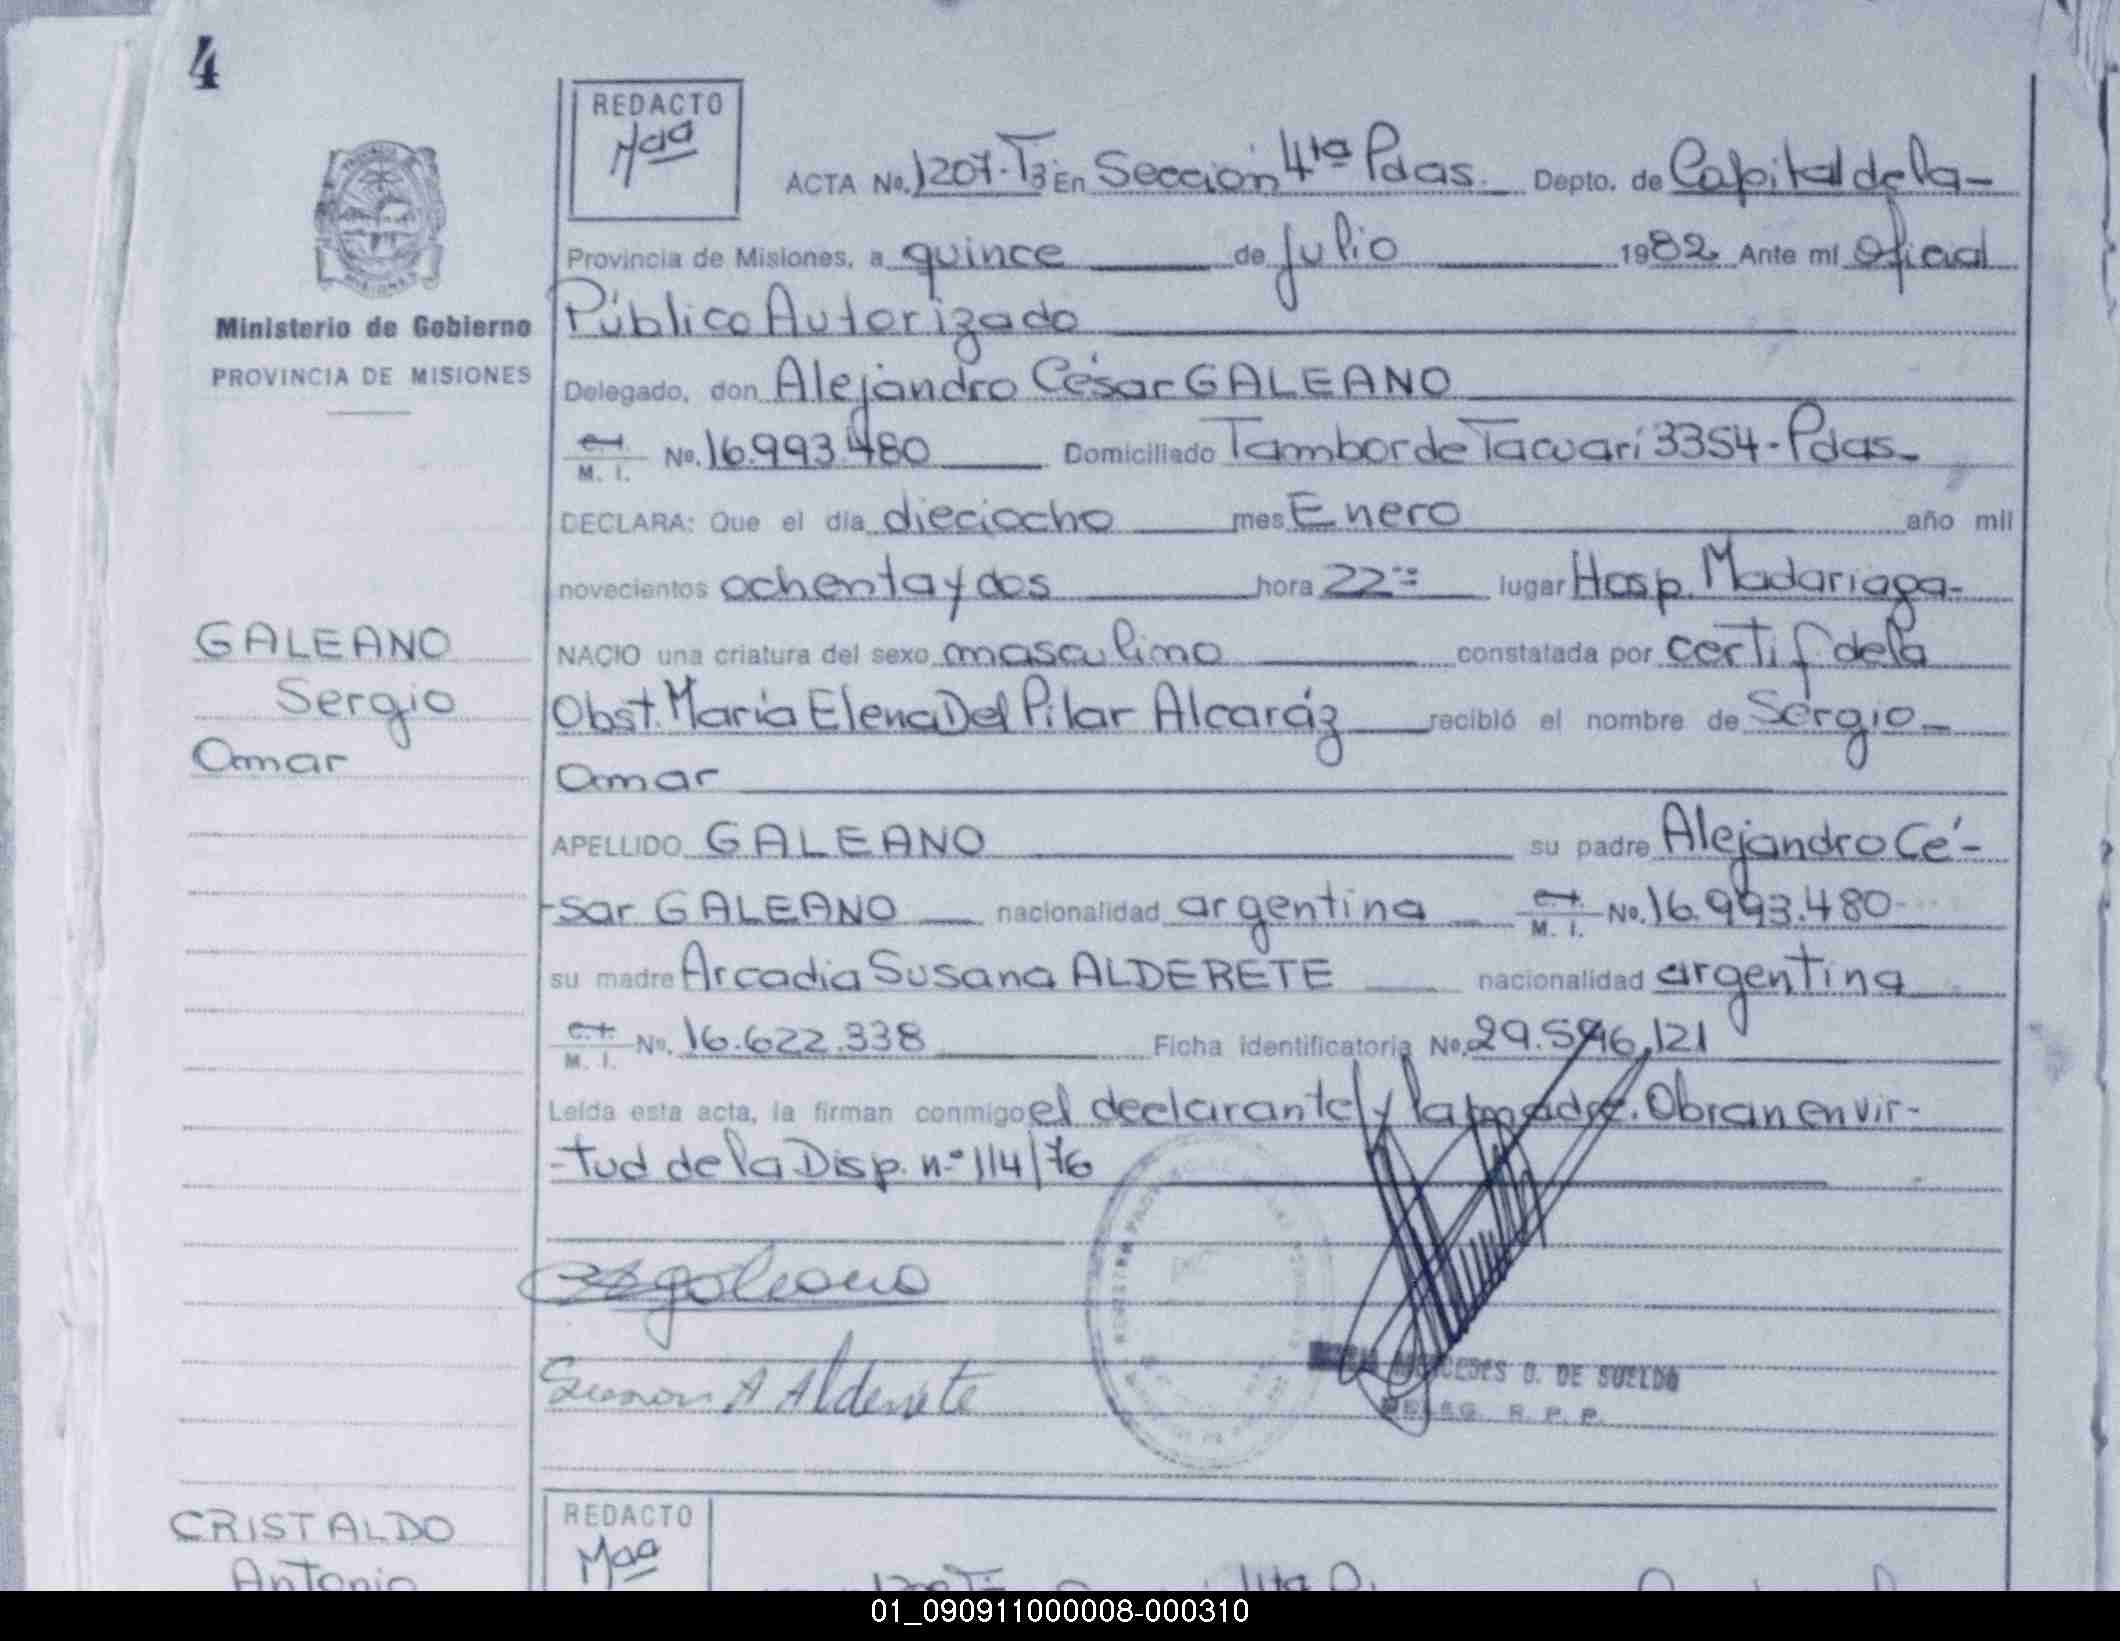 4
REDACTO
Maa
ACTA No. 1207-T3 En Sección 4ta Pdas. Depto. de Capital de la-
Provincia de Misiones, a quince de Julio 1982. Ante mí Oficial
Público Autorizado
Delegado, don Alejandro César GALEANO
C.I. M. I. No. 16.993.480 Domiciliado Tambor de Tacuarí 3354-Pdas-
DECLARA: Que el día dieciocho mes Enero año mil
novecientos ochenta y dos hora 22 lugar Hosp. Madariaga-
NACIO una criatura del sexo masculino constatada por certif de la
Obst. María Elena Del Pilar Alcaráz recibió el nombre de Sergio-
Omar
APELLIDO GALEANO su padre Alejandro Cé-
-sar GALEANO nacionalidad argentina C.I. M. I. No. 16.993.480
su madre Arcadia Susana ALDERETE nacionalidad argentina
C.I. M. I. No. 16.622.338 Ficha identificatoria No. 29.596.121
Leída esta acta, la firman conmigo el declarante y la madre. Obran en vir-
-tud de la Disp. n.º 114/76
Galeano
A Alderete
MERCEDES D. DE SUELDO
DELEG. R. P. P.
Ministerio de Gobierno
PROVINCIA DE MISIONES
GALEANO
Sergio
Omar
CRISTALDO
Antonio
REDACTO
Maa
01_090911000008-000310